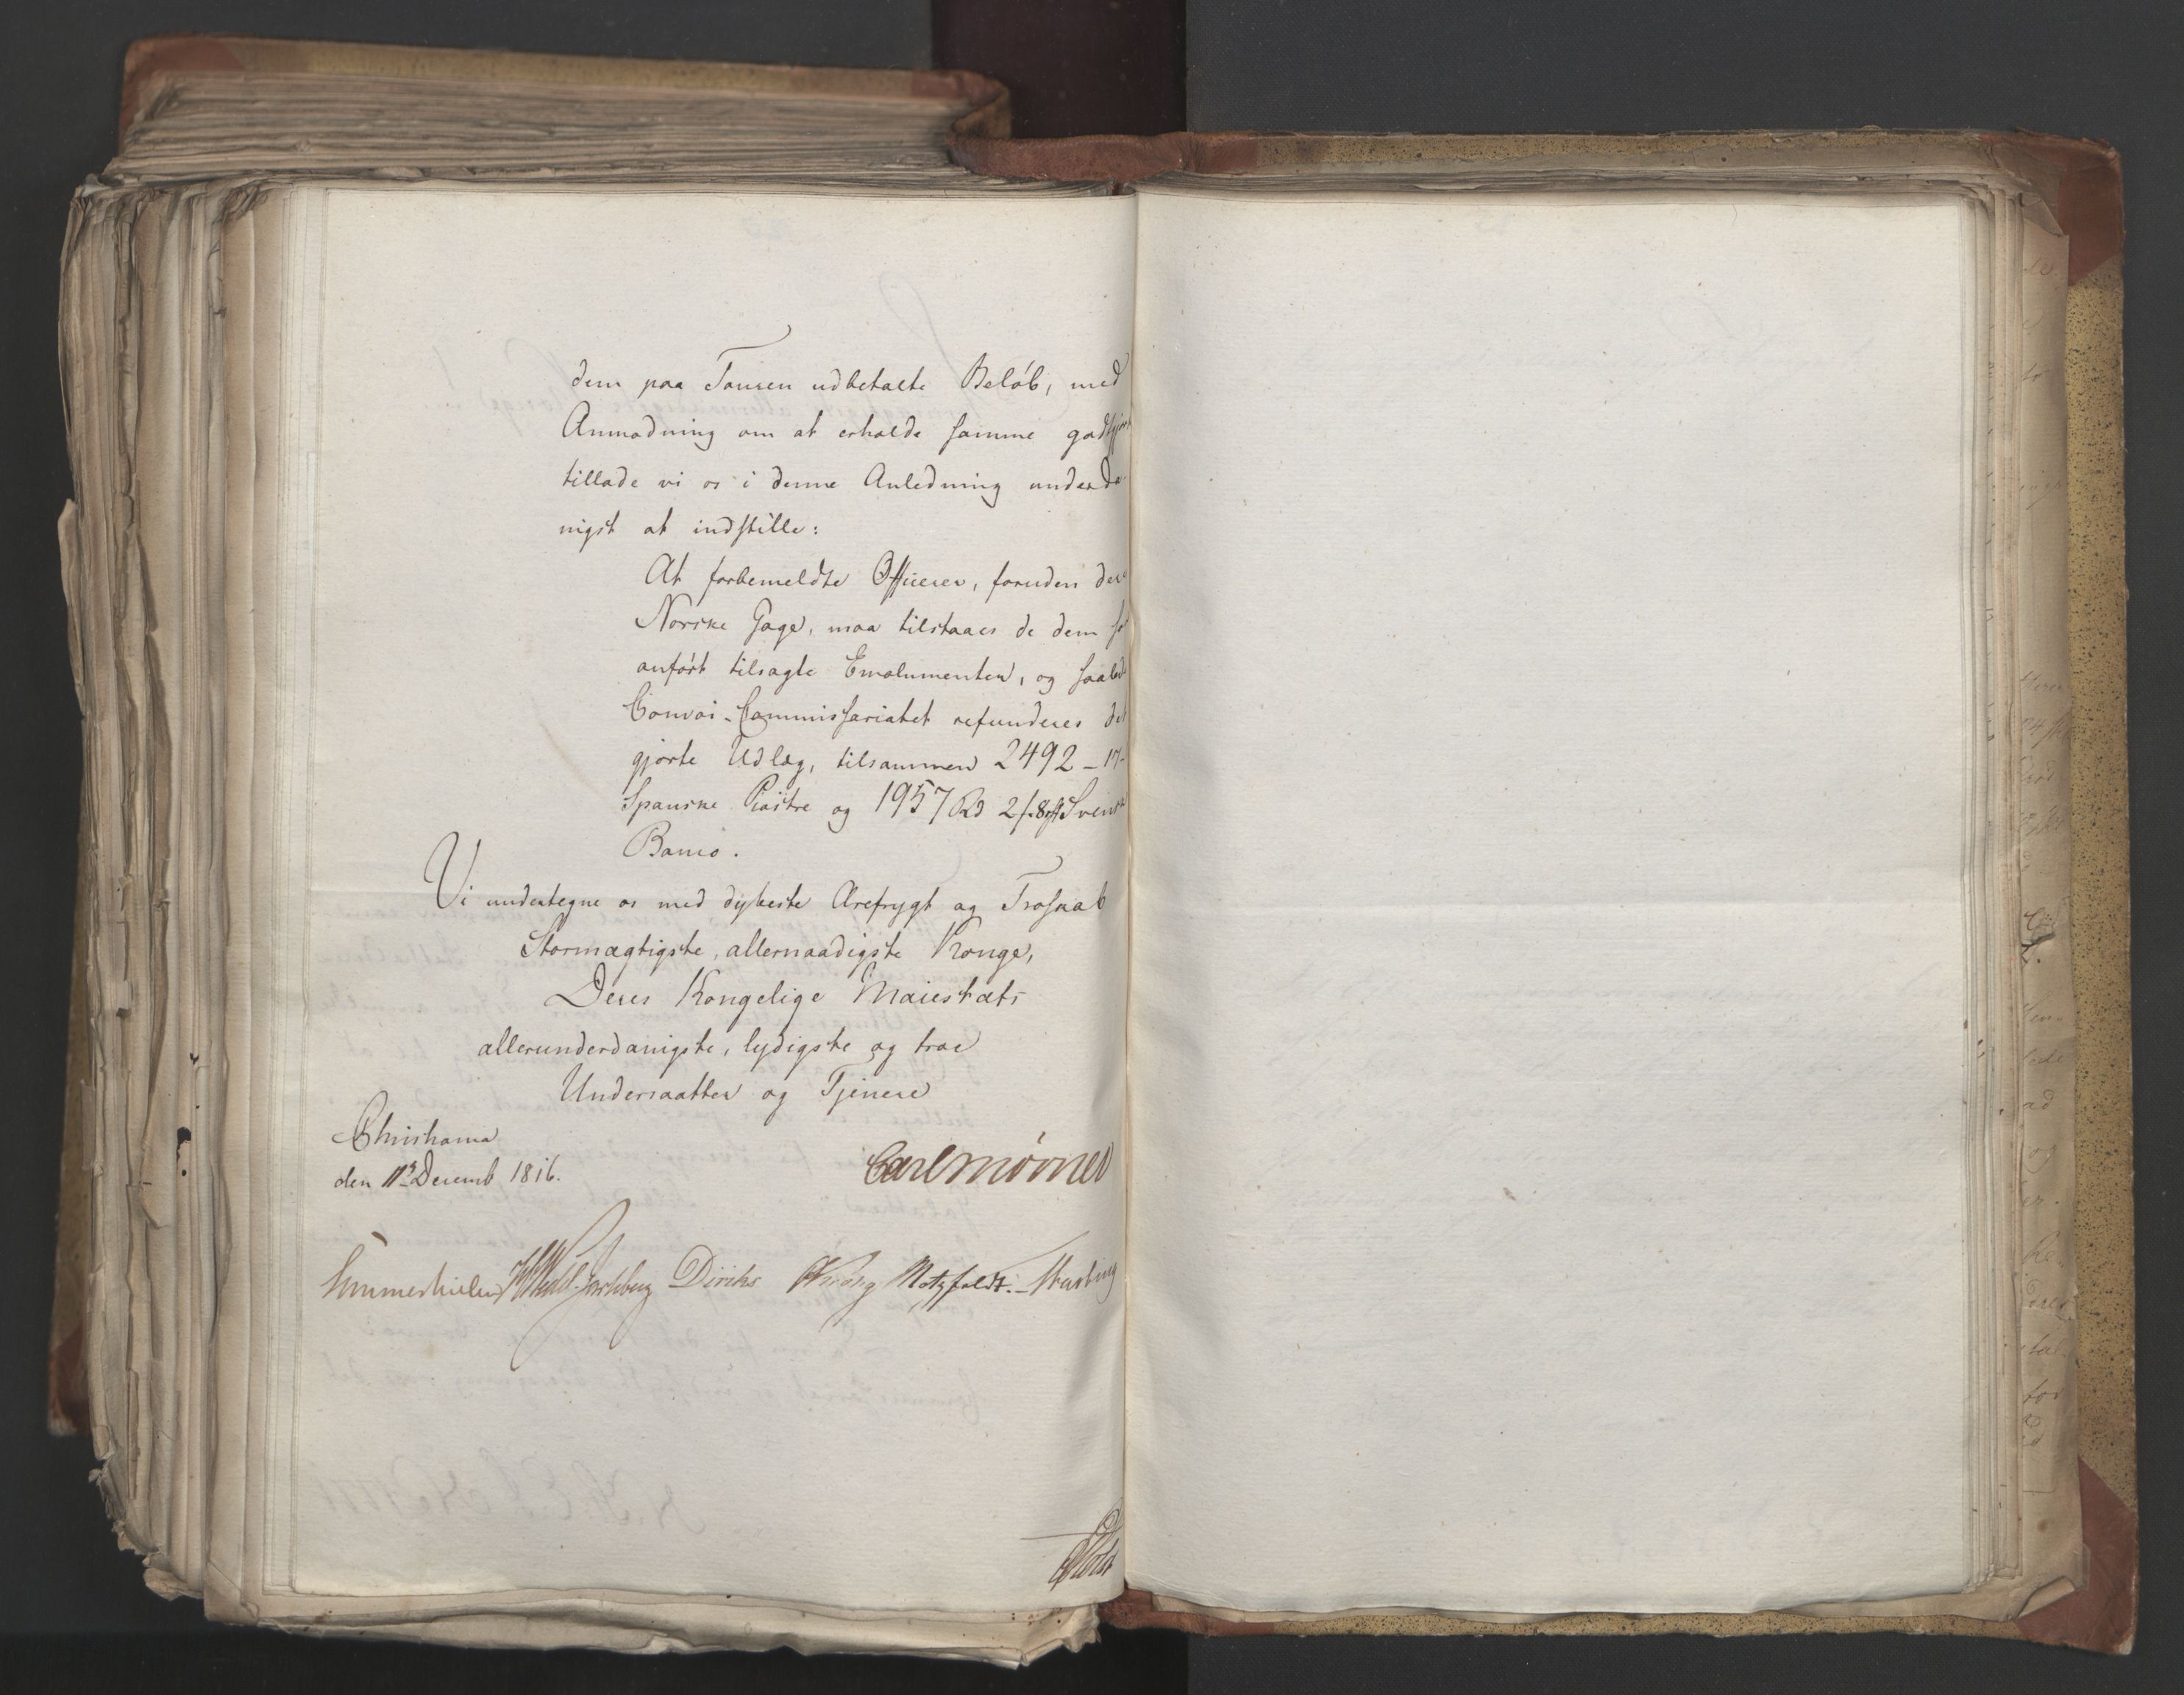 dem paa Touren udbetalte Beløb, med
Anmodning om at erholde samme godtgjort
tillade vi os i denne Anledning underda-
nigst at indstille:
At forbemeldte Officerer, foruden den
Norske Gage, maa tilstaaes de dem saa
anført tilsagte Emolumenter, og saaledes
Convoi-Commissariatet refunderes det
gjorte Udlæg, tilsammen 2492-17-
Spanske Piastre og 1957 Rd 2 s. 8 rst Svensk
Banco.
Vi undertegne os med dybeste Ærefrygt og Troskab
Stormægtigste, allernaadigste Konge,
Deres Kongelige Maiestæts
allerunderdanigste, lydigste og troe
Undersaatter og Tjenere
Christiania
den 11te Decemb 1816.
Carl Mörner
Sommerhielm Wedel-Jarlsberg Diriks Krieg Motzfeldt. Hasting
Holst